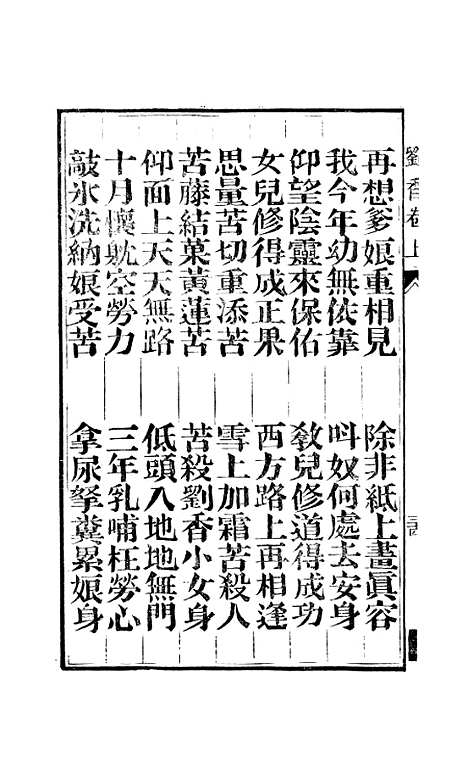 劉香卷上
再想爹娘重相見　除非紙上畫眞容
我今年幼無依靠　呌奴何處去安身
仰望陰靈來保佑　敎兒修道得成功
女兒修得成正果　西方路上再相逢
思量苦切重添苦　雪上加霜苦殺人
苦藤結菓黃蓮苦　苦殺劉香小女身
仰面上天天無路　低頭入地地無門
十月懷躭空勞力　三年乳哺枉勞心
敲氷洗納娘受苦　拿尿拏糞累娘身